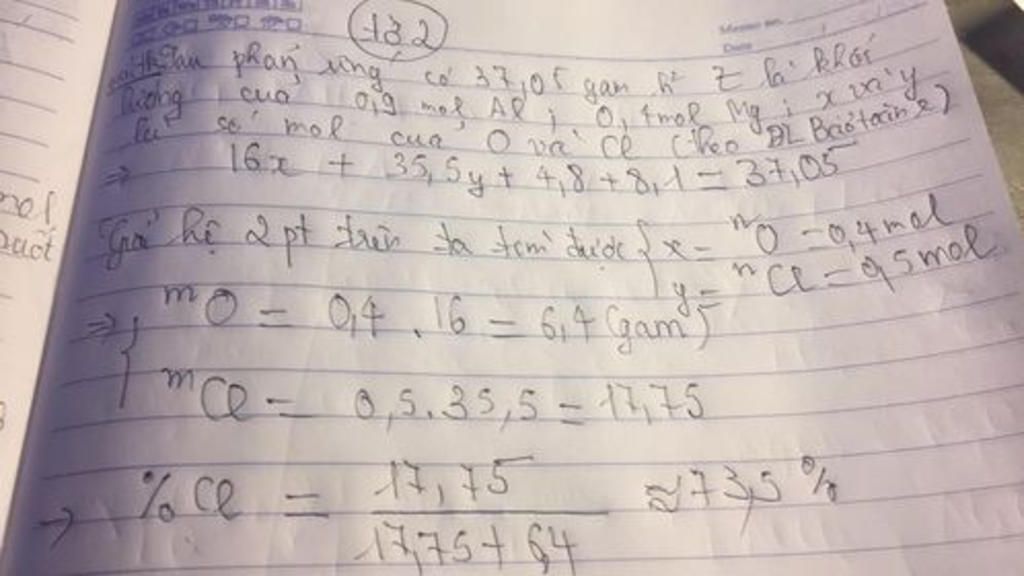 13.2
Sau phản ứng có 37,05 gam h² Z là khối
lượng của 0,9 mol Al ; 0,4 mol Mg ; x và y
là số mol của O và Cl (theo ĐL Bảo toàn e)
⇒ 16x + 35,5y + 4,8 + 8,1 = 37,05
Giải hệ 2 pt trên ta tìm được { x = nO = 0,4 mol
y = nCl = 0,5 mol
⇒ { mO = 0,4 . 16 = 6,4 (gam)
mCl = 0,5 . 35,5 = 17,75
→ %Cl = 17,75 / 17,75 + 6,4 ≈ 73,5 %
mol